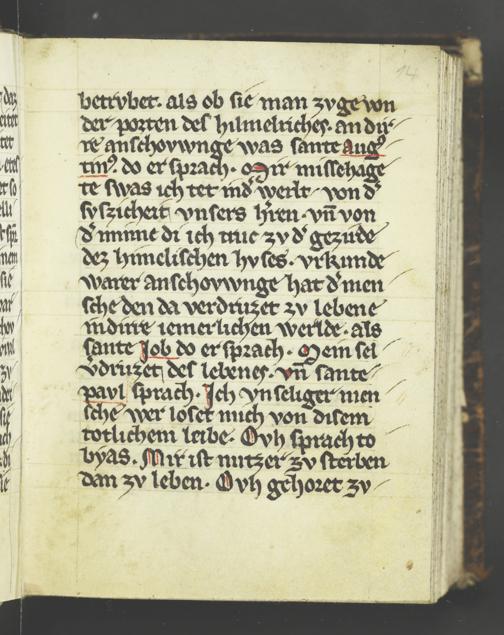 14
betrvbet· als ob sie man zvge von
der porten des himelriches· an dir
re anschovwnge was sante Aug9
tin9· do er sprach· Mir missehage
te swas ich tet in d' werlt· von d'
svszicheit vnsers h'ren· vn̄ von
d' minne di ich truc zv d' gezirde
dez himelischen hvses· vrkunde
warer anschovwnge hat d' men
sche den da verdruzet zv lebene
in dirre iemerlichen werlde· als
sante Job do er sprach· Mein sel
v'druzet des lebenes· vn̄ sante
pavl sprach· Ich vnseliger men
sche wer loset mich von disem
totlichem leibe· Ovh sprach to
byas· Mir ist nutzer zv sterben
dan zv leben· Ovh gehoret zv